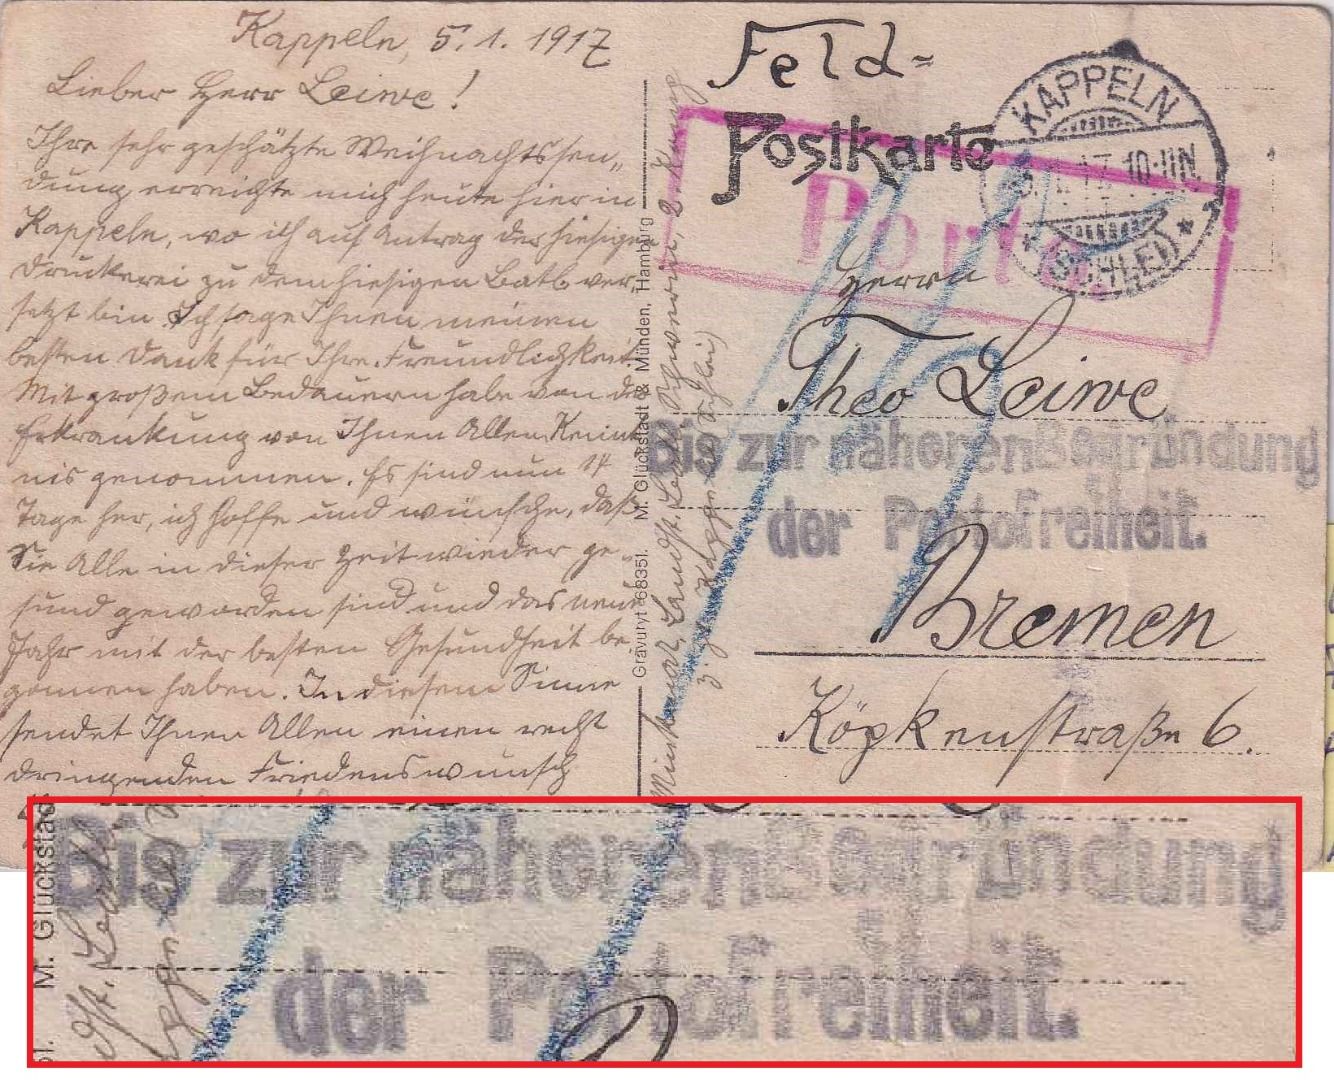 Kappeln, 5.1.1917
Lieber Herr Leiwe!
Ihre sehr geschätzte Weihnachtssen„
dung erreichte mich heute hier in
Kappeln, wo ich auf Antrag der hiesigen
Druckerei zu dem hiesigen Batl. ver„
setzt bin. Ich sage Ihnen meinen
besten Dank für Ihre Freundlichkeit.
Mit großem Bedauern habe von der
Erkrankung von Ihnen Allen Kennt
nis genommen. Es sind nun 14
Tage her, ich hoffe und wünsche, daß
Sie Alle in dieser Zeit wieder ge„
sund geworden sind und das neue
Jahr mit der besten Gesundheit be„
gonnen haben. In diesem Sinne
sendet Ihnen Allen einen recht
dringenden Friedenswunsch
M. Glückstadt & Münden, Hamburg
Gravuryt 68351.
Landst.
Feld=
Postkarte
KAPPELN
17 10-11N.
(SCHLEI)
Porto
Herrn
Theo Leiwe
Bis zur näheren Begründung
der Portofreiheit.
Bremen
Köpkenstraße 6.
M. Glückstad
Bis zur näheren Begründung
der Portofreiheit.